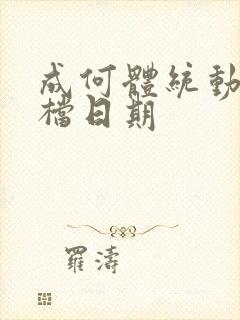 成何體統動
檔日期
羅濤